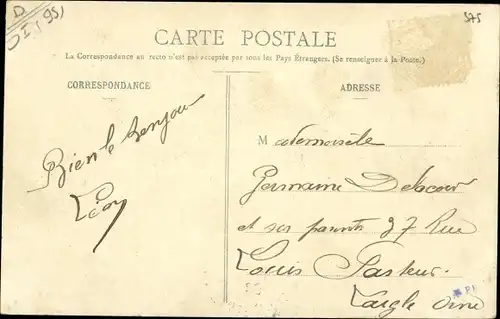 D
DIV 95)
575
CARTE POSTALE
La Correspondance au recto n'est pas acceptée par tous les Pays Étrangers. (Se renseigner à la Poste.)
CORRESPONDANCE
ADRESSE
Bien le bonjour
Léon
Mademoiselle
Germaine Delacour
et ses parents 37 Rue
Louis Pasteur
Laigle Orne